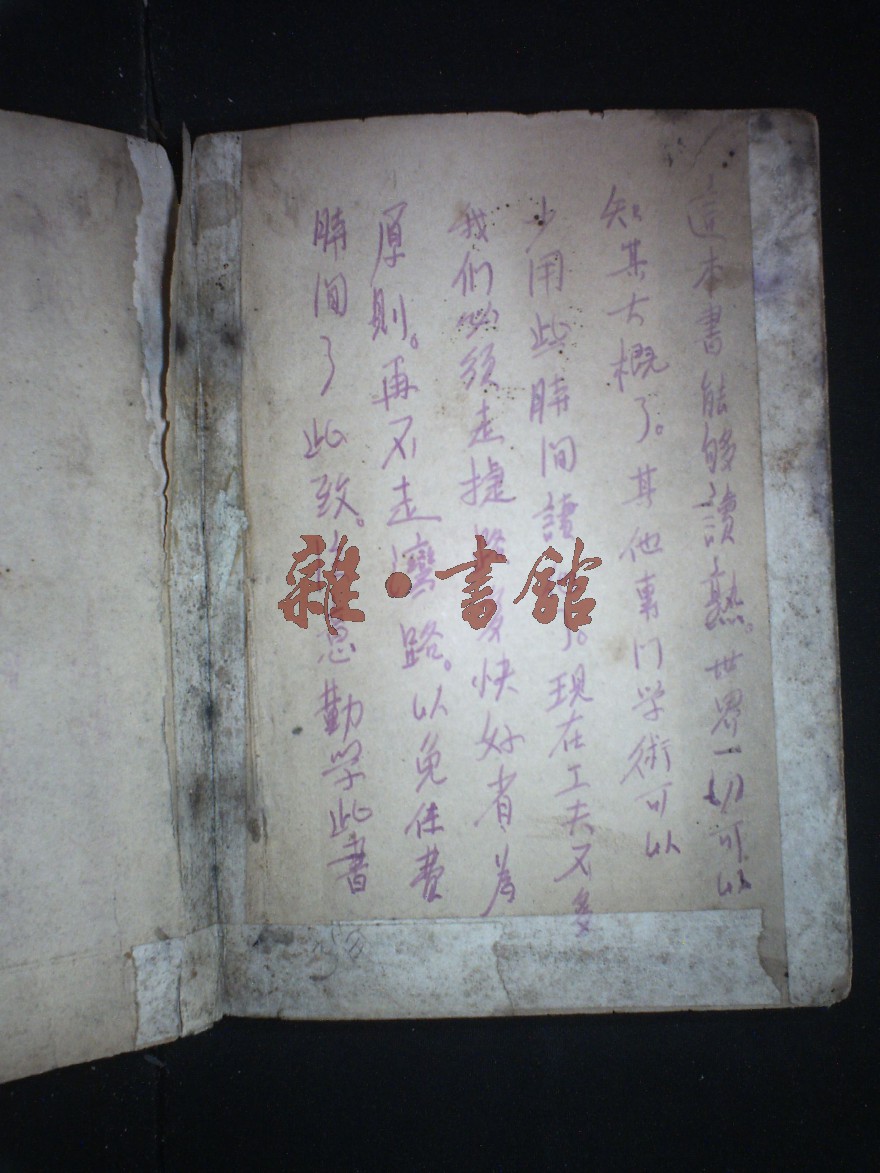 這本書能够讀熟。世界一切可以
知其大概了。其他專門学術可以
少用些時间讀了。現在工夫不多
我们必须走捷路多快好省為
原则。再不走彎路。以免佳費
時间了此致。注意勤学此書
雜·書館